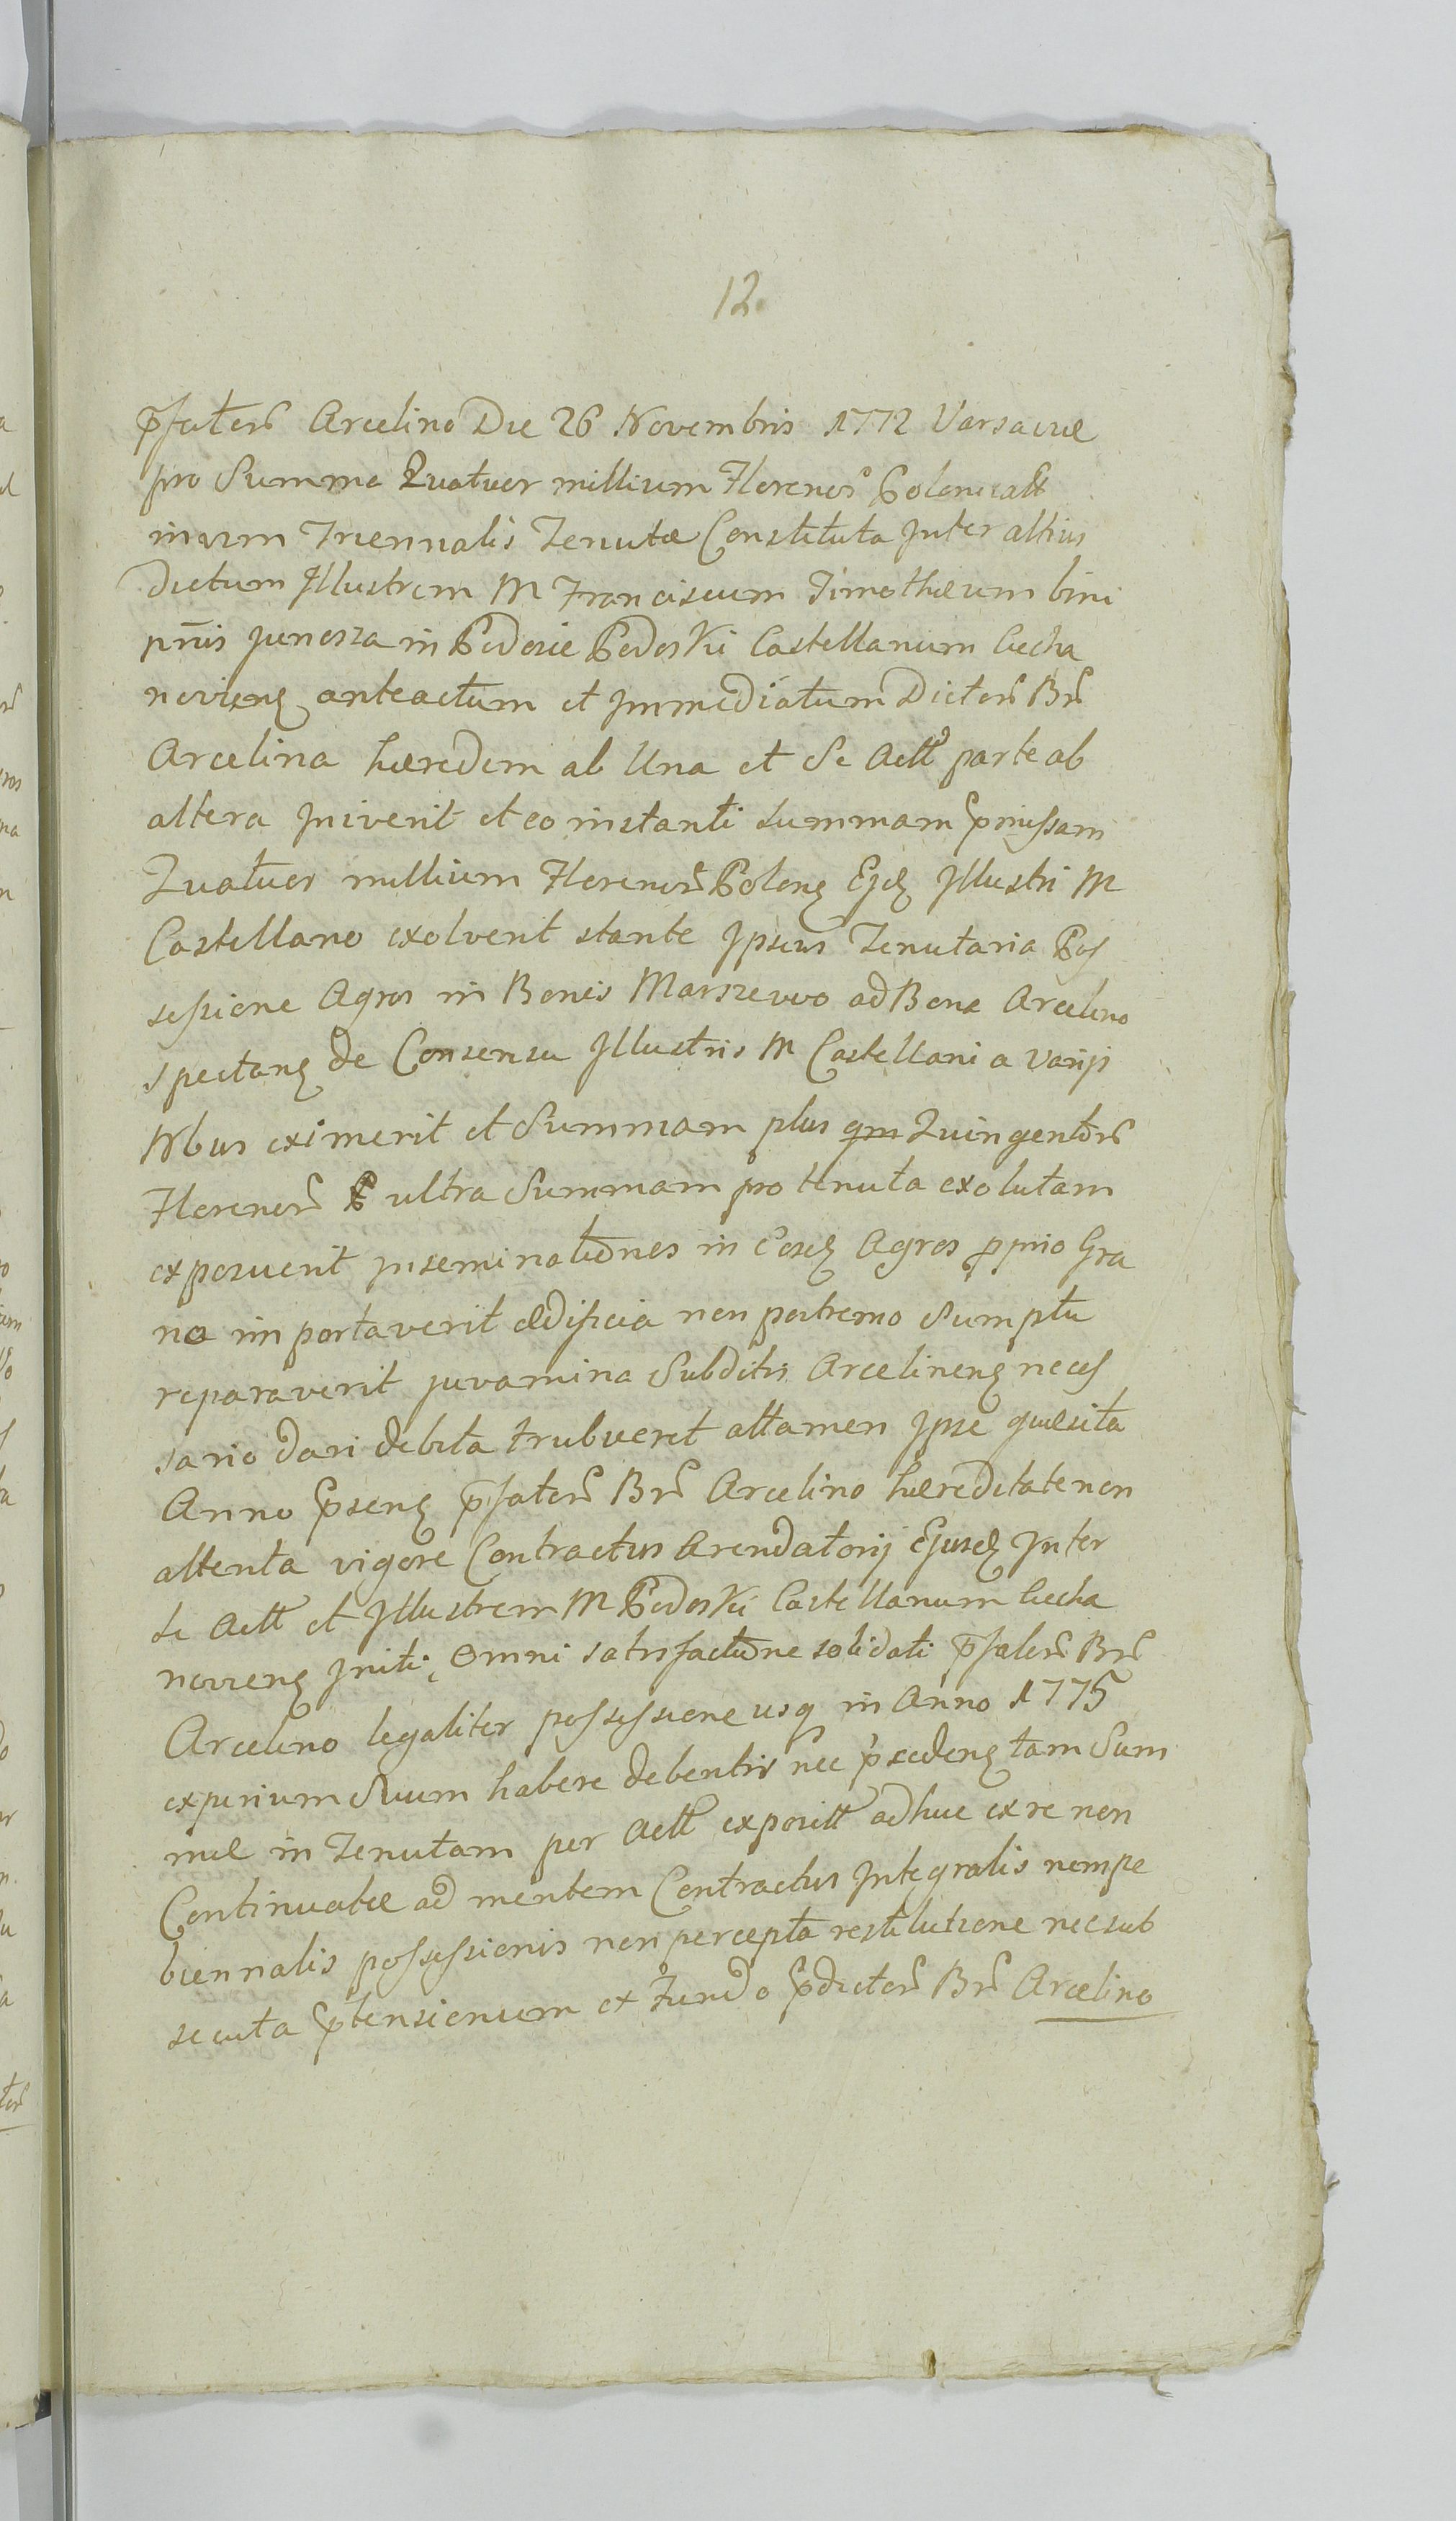 12
pfatorum Arcelino Die 26 Novembris 1772 Varsaviæ
pro Summa Quatuor millium Florenor Polonicalt
in vim Triennalis Tenutæ Constituta Inter altius
dictum Illustrem M Franciscum Timothæum bini
pnis Junosza in Podosie Podoski Castellanum Ciecha
novieng anteactum et Immediatum Dictor Br
Arcelina hæredem ab Una et Se Actt parte ab
altera Iniverit et eo instanti summam pmissam
Quatuor millium Florenor Polong Ejdg Illustri M
Castellano exolverit stante Ipsius Tenutaria Pos
sessione Agros in Bonis Marszewo ad Bona Arcelino
spectang de Consensu Illustris M Castellani a varijs
Nbus eximerit et Summam plus qm Quingentor
Florenor P ultra Summam pro tenuta exolutam
exposuerit Inseminationes in Eosdg Agros pprio Gra
no importaverit ædificia non postremo Sumptu
reparaverit juvamina Subditis Arcelineng neces
sario dari debita trubuerit attamen Ipse quæsita
Anno pseng pfator Br Arcelino hæreditate non
attenta vigore Contractus Arendatorij Ejusdg Inter
se Actt et Illustrem M Podoski Castellanum Ciecha
novieng Initi, Omni satisfactione solidati pfator Br
Arcelino legaliter possessione usq in Anno 1775
expirium Suum habere debentis nec pcedeng tam Sum
mæ in Tenutam per Actt exposit adhuc ex re non
Continuatæ ad mentem Contractus Integralis nempe
biennalis possessionis non percepta restitutione nec sub
secuta ptensionum ex Fundo pdictor Br Arcelino